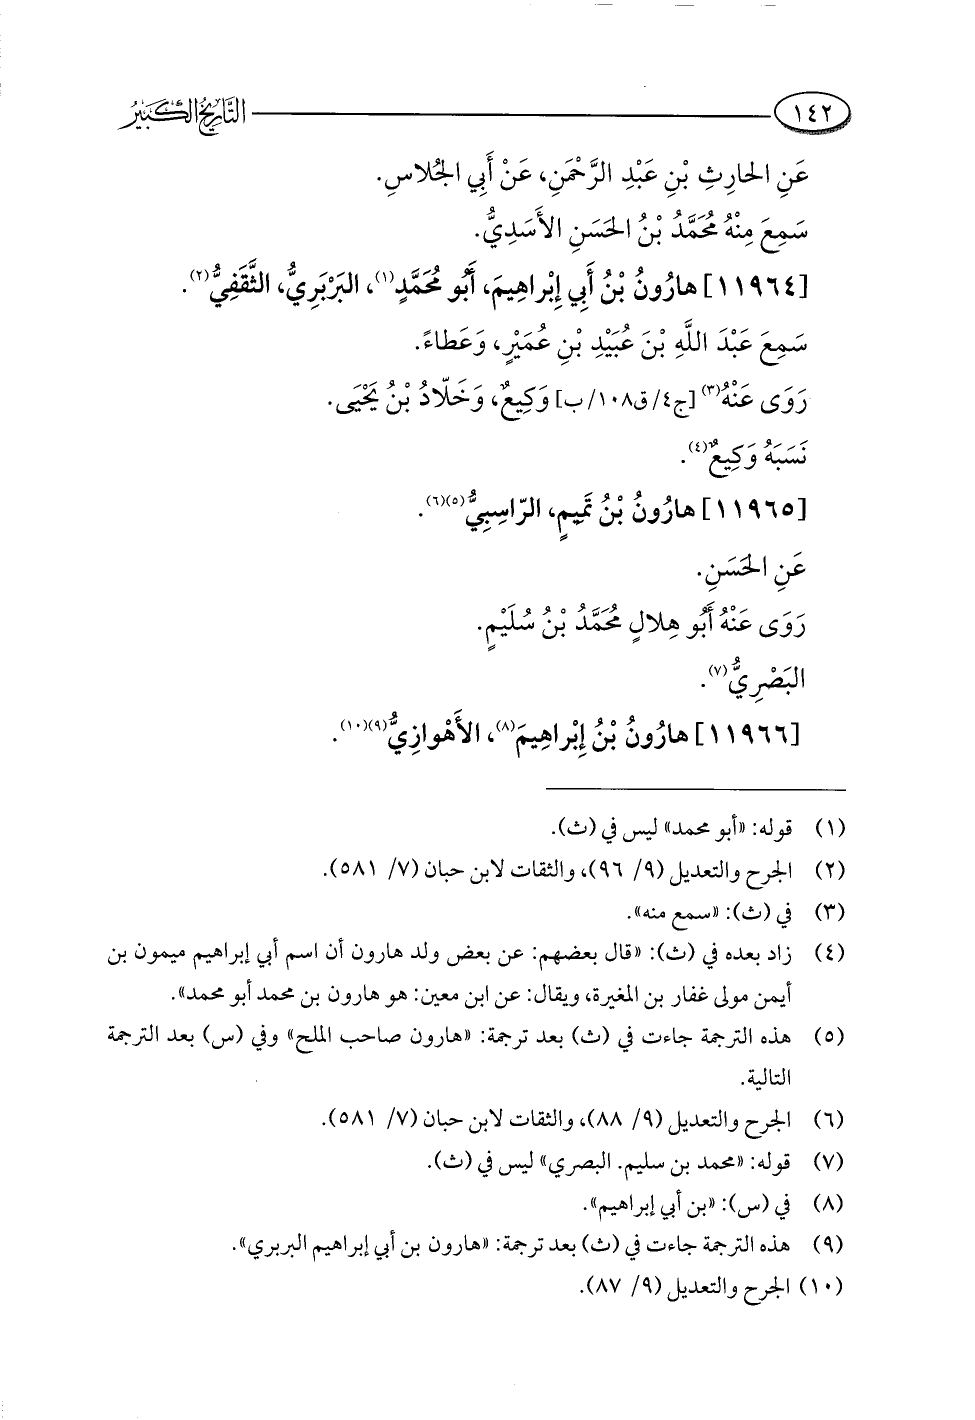 ١٤٢ التَّارِيخُ الكَبِيرُ
عَنِ الحارِثِ بْنِ عَبْدِ الرَّحْمَنِ، عَنْ أَبِي الجُلاسِ.
سَمِعَ مِنْهُ مُحَمَّدُ بْنُ الحَسَنِ الأَسَدِيُّ.
[١١٩٦٤] هارُونُ بْنُ أَبِي إِبْراهِيمَ، أَبُو مُحَمَّدٍ(١)، البَرْبَرِيُّ، الثَّقَفِيُّ(٢).
سَمِعَ عَبْدَ اللَّهِ بْنَ عُبَيْدِ بْنِ عُمَيْرٍ، وَعَطاءً.
رَوَى عَنْهُ(٣) [ج٤/ ق١٠٨/ ب] وَكِيعٌ، وَخَلّادُ بْنُ يَحْيَى.
نَسَبَهُ وَكِيعٌ(٤).
[١١٩٦٥] هارُونُ بْنُ تَمِيمٍ، الرّاسِبِيُّ(٥)(٦).
عَنِ الحَسَنِ.
رَوَى عَنْهُ أَبُو هِلالٍ مُحَمَّدُ بْنُ سُلَيْمٍ.
البَصْرِيُّ(٧).
[١١٩٦٦] هارُونُ بْنُ إِبْراهِيمَ(٨)، الأَهْوازِيُّ(٩)(١٠).
(١) قوله: «أبو محمد» ليس في (ث).
(٢) الجرح والتعديل (٩/ ٩٦)، والثقات لابن حبان (٧/ ٥٨١).
(٣) في (ث): «سمع منه».
(٤) زاد بعده في (ث): «قال بعضهم: عن بعض ولد هارون أن اسم أبي إبراهيم ميمون بن
أيمن مولى غفار بن المغيرة، ويقال: عن ابن معين: هو هارون بن محمد أبو محمد».
(٥) هذه الترجمة جاءت في (ث) بعد ترجمة: «هارون صاحب الملح» وفي (س) بعد الترجمة
التالية.
(٦) الجرح والتعديل (٩/ ٨٨)، والثقات لابن حبان (٧/ ٥٨١).
(٧) قوله: «محمد بن سليم. البصري» ليس في (ث).
(٨) في (س): «بن أبي إبراهيم».
(٩) هذه الترجمة جاءت في (ث) بعد ترجمة: «هارون بن أبي إبراهيم البربري».
(١٠) الجرح والتعديل (٩/ ٨٧).